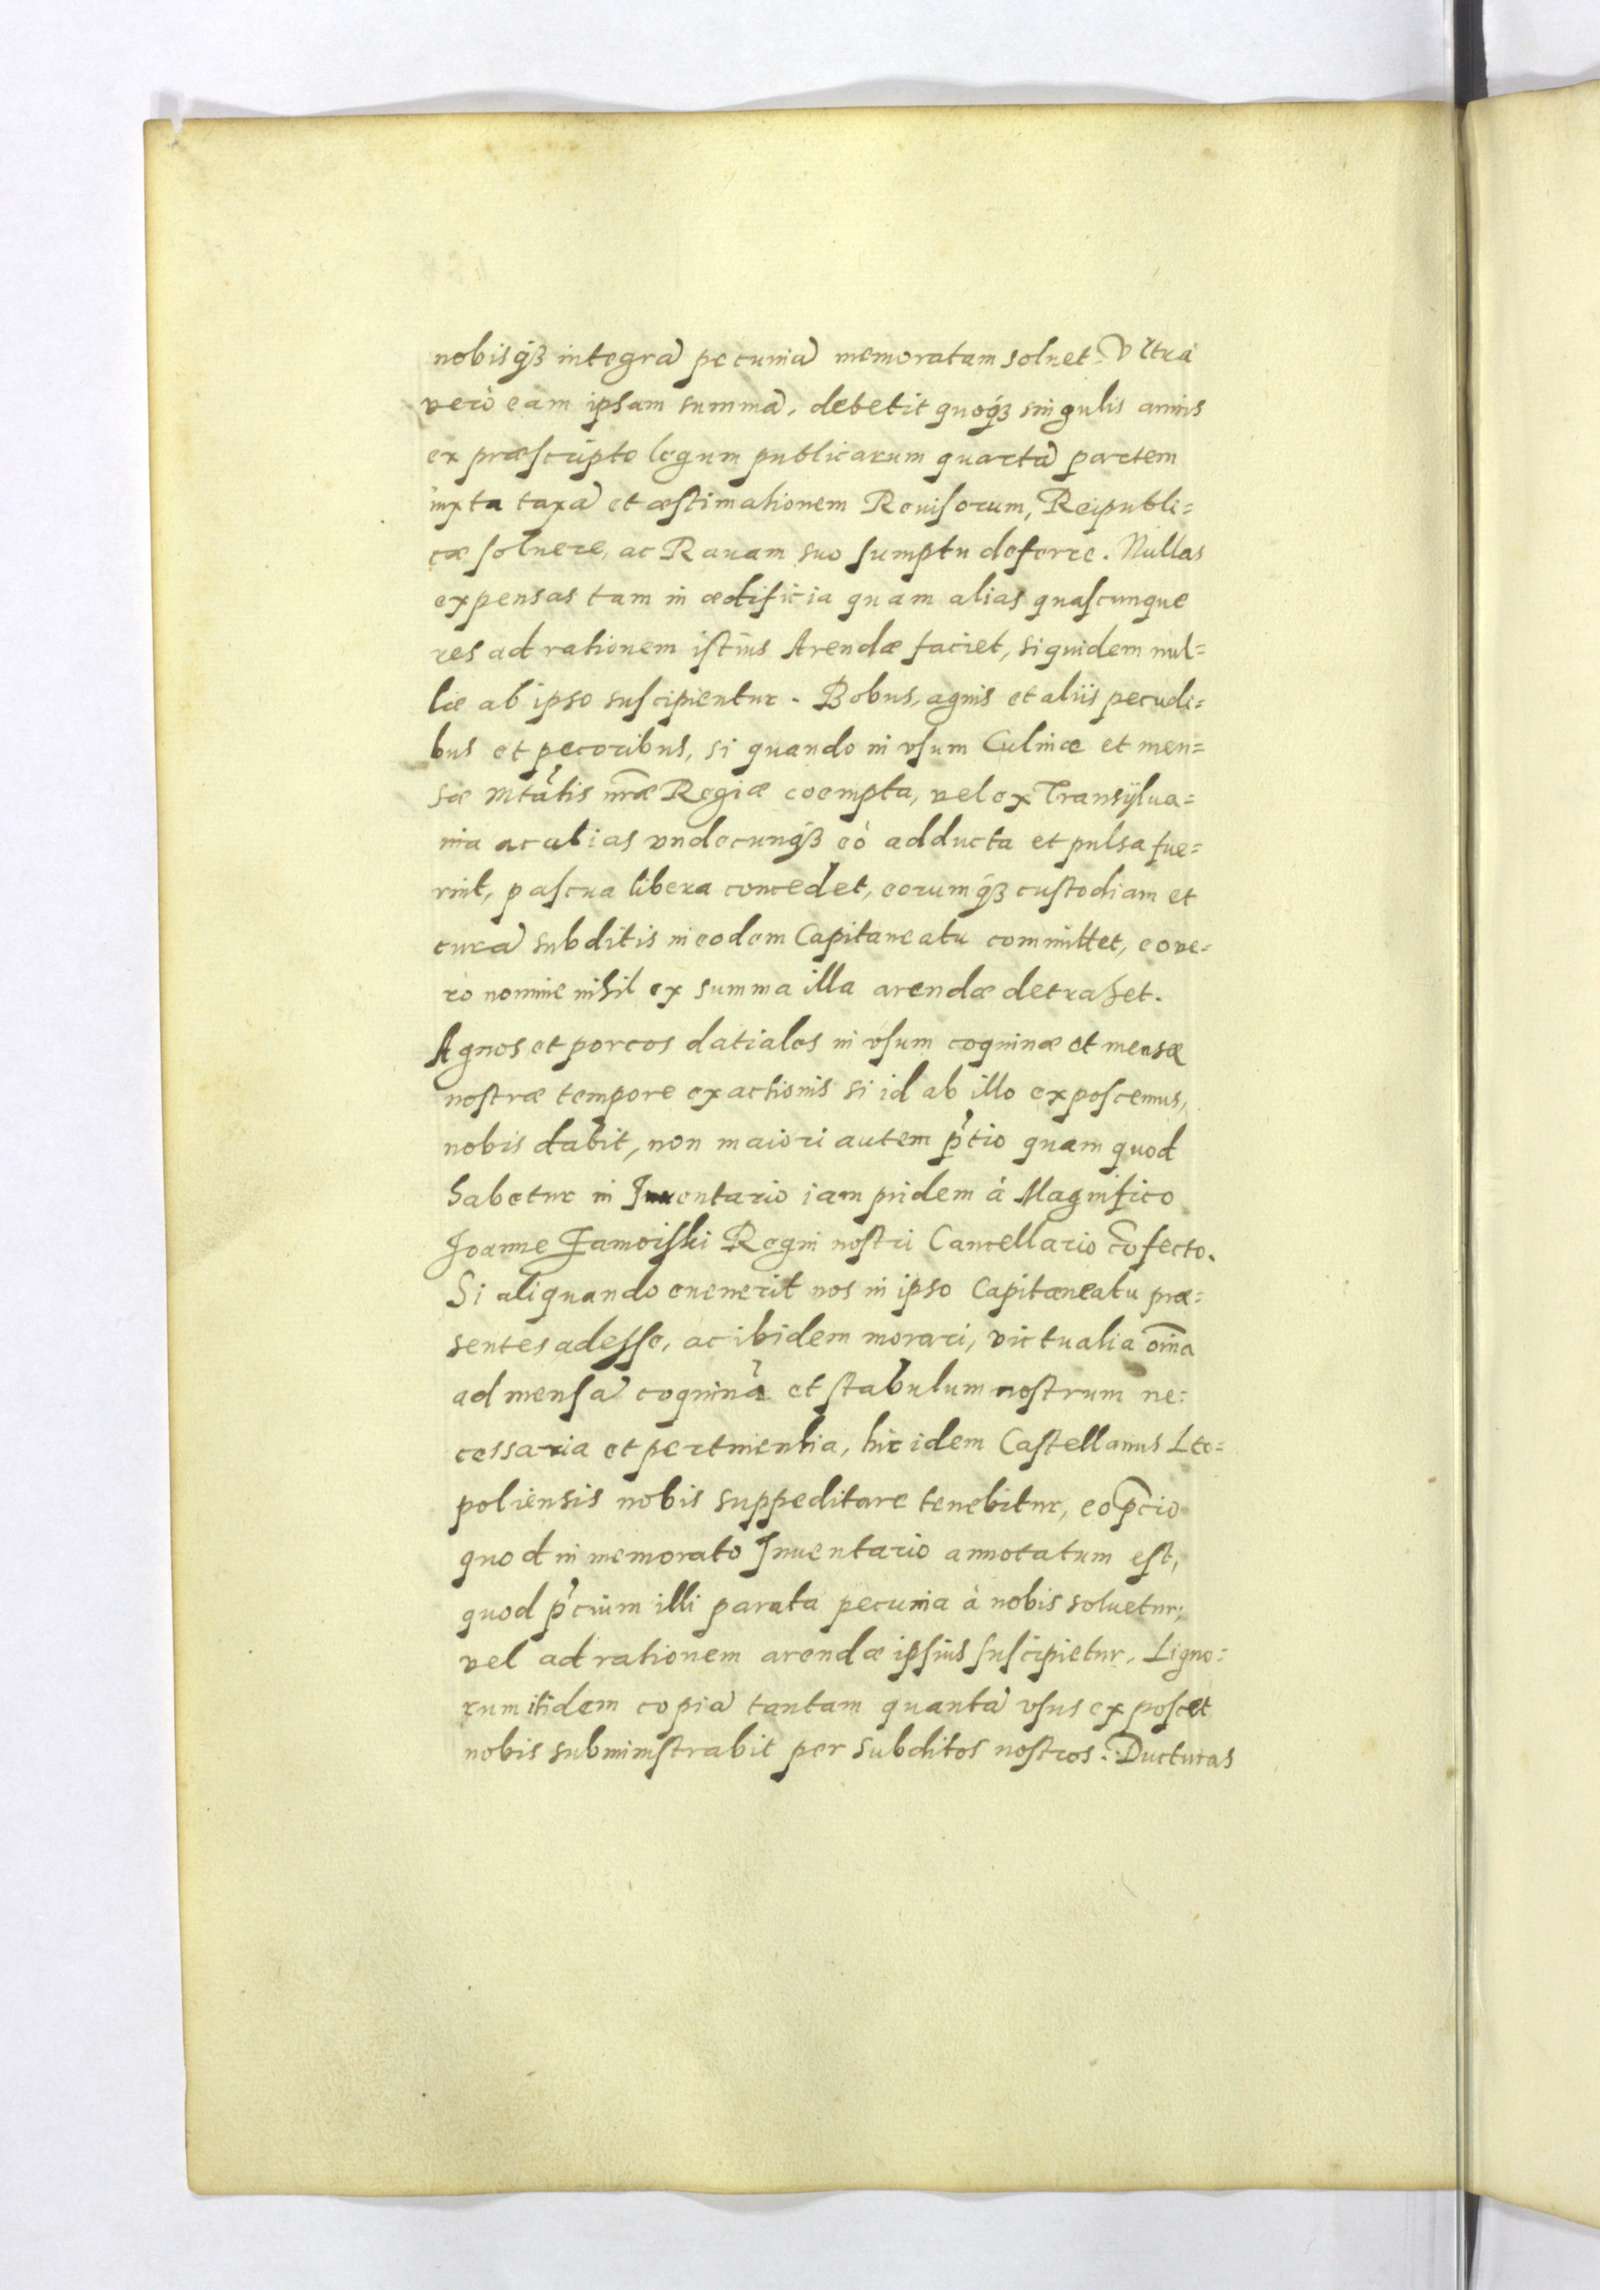 nobisq́ꝫ integrã pecuniã memoratam soluet. Vltrà
verò eam ipsam summã, debebit quoq́ꝫ singulis annis
ex præscripto legum publicarum quartã partem
iuxta taxã et æstimationem Reuisorum, Reipubli=
cæ soluere, ac Rauam suo sumptu deferre. Nullas
expensas tam in ædificia quàm alias quascunque
res ad rationem istius Arendæ faciet, siquidem nul=
læ ab ipso suscipientur. Bobus, agnis et aliis pecudi=
bus et pecoribus, si quando in vsum Culinæ et men=
sæ Mtãtis nr̃æ Regiæ coempta, vel ex Transÿlua=
nia ac alias vndecunq́ꝫ eò adducta et pulsa fue=
rint, pascua libera concedet, eorumq́ꝫ custodiam et
curã subditis in eodem Capitaneatu committet, eo ve=
rò nomine nihil ex summa illa arendæ detrahet.
Agnos et porcos datiales in vsum coquinæ et mensæ
nostræ tempore exactionis si id ab illo exposcemus,
nobis dabit, non maiori autem p̃tio quam quod
habetur in Inuentario iam pridem à Magnifico
Joanne Zamoiski Regni nostri Cancellario cõfecto.
Si aliquando euenerit nos in ipso Capitaneatu præ=
sentes adesse, ac ibidem morari, victualia om̃ia
ad mensã coquinã et stabulum nostrum ne=
cessaria et pertinentia, hic idem Castellanus Leo=
poliensis nobis suppeditare tenebitur, eo p̃cio
quod in memorato Inuentario annotatum est,
quod p̃cium illi parata pecunia à nobis soluetur,
vel ad rationem arendæ ipsius suscipietur. Ligno=
rum itidem copiã tantam quantã vsus exposcet
nobis subministrabit per subditos nostros. Ducturas